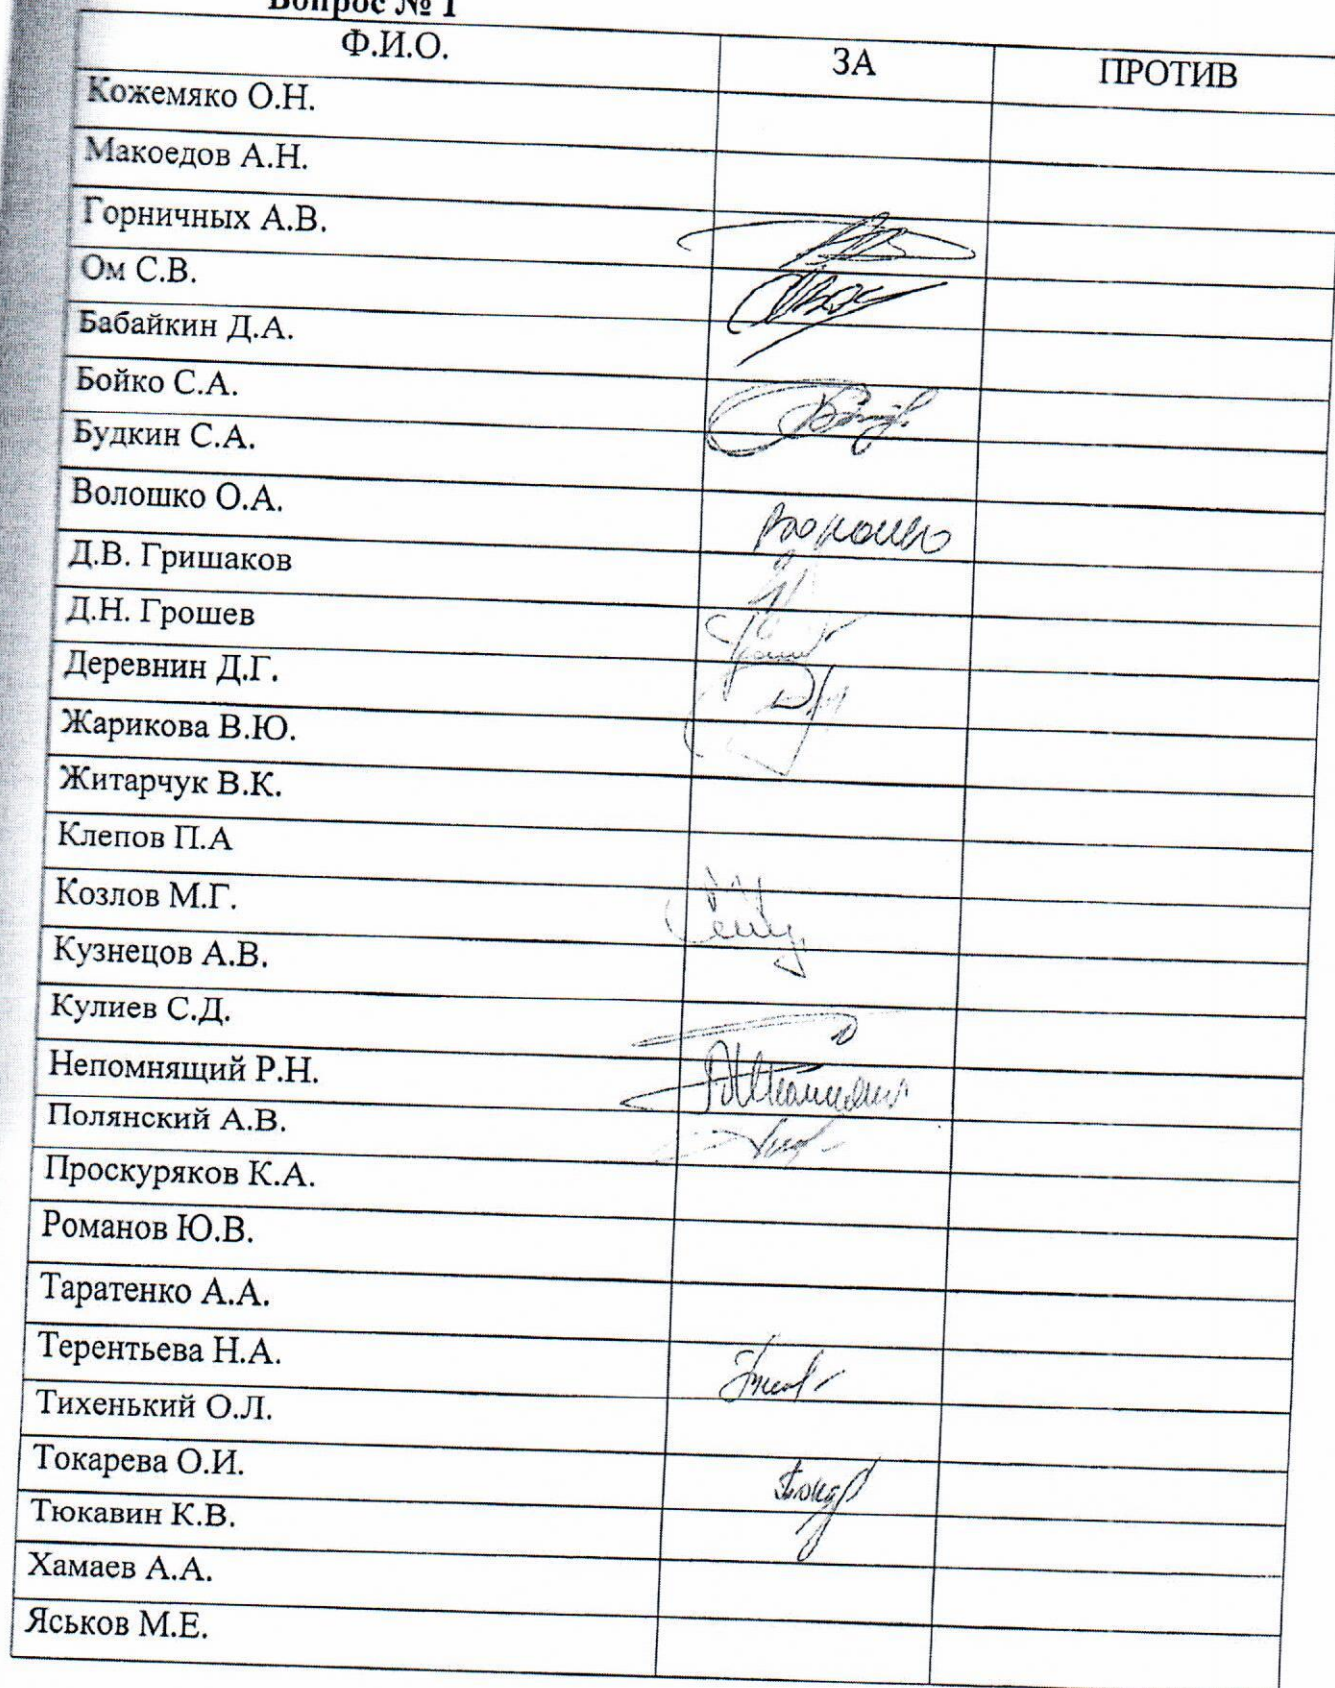 Вопрос № 1
Ф.И.О. ЗА ПРОТИВ
Кожемяко О.Н.
Макоедов А.Н.
Горничных А.В.
Ом С.В.
Бабайкин Д.А.
Бойко С.А.
Будкин С.А.
Волошко О.А.
Д.В. Гришаков
Д.Н. Грошев
Деревнин Д.Г.
Жарикова В.Ю.
Житарчук В.К.
Клепов П.А
Козлов М.Г.
Кузнецов А.В.
Кулиев С.Д.
Непомнящий Р.Н.
Полянский А.В.
Проскуряков К.А.
Романов Ю.В.
Таратенко А.А.
Терентьева Н.А.
Тихенький О.Л.
Токарева О.И.
Тюкавин К.В.
Хамаев А.А.
Яськов М.Е.